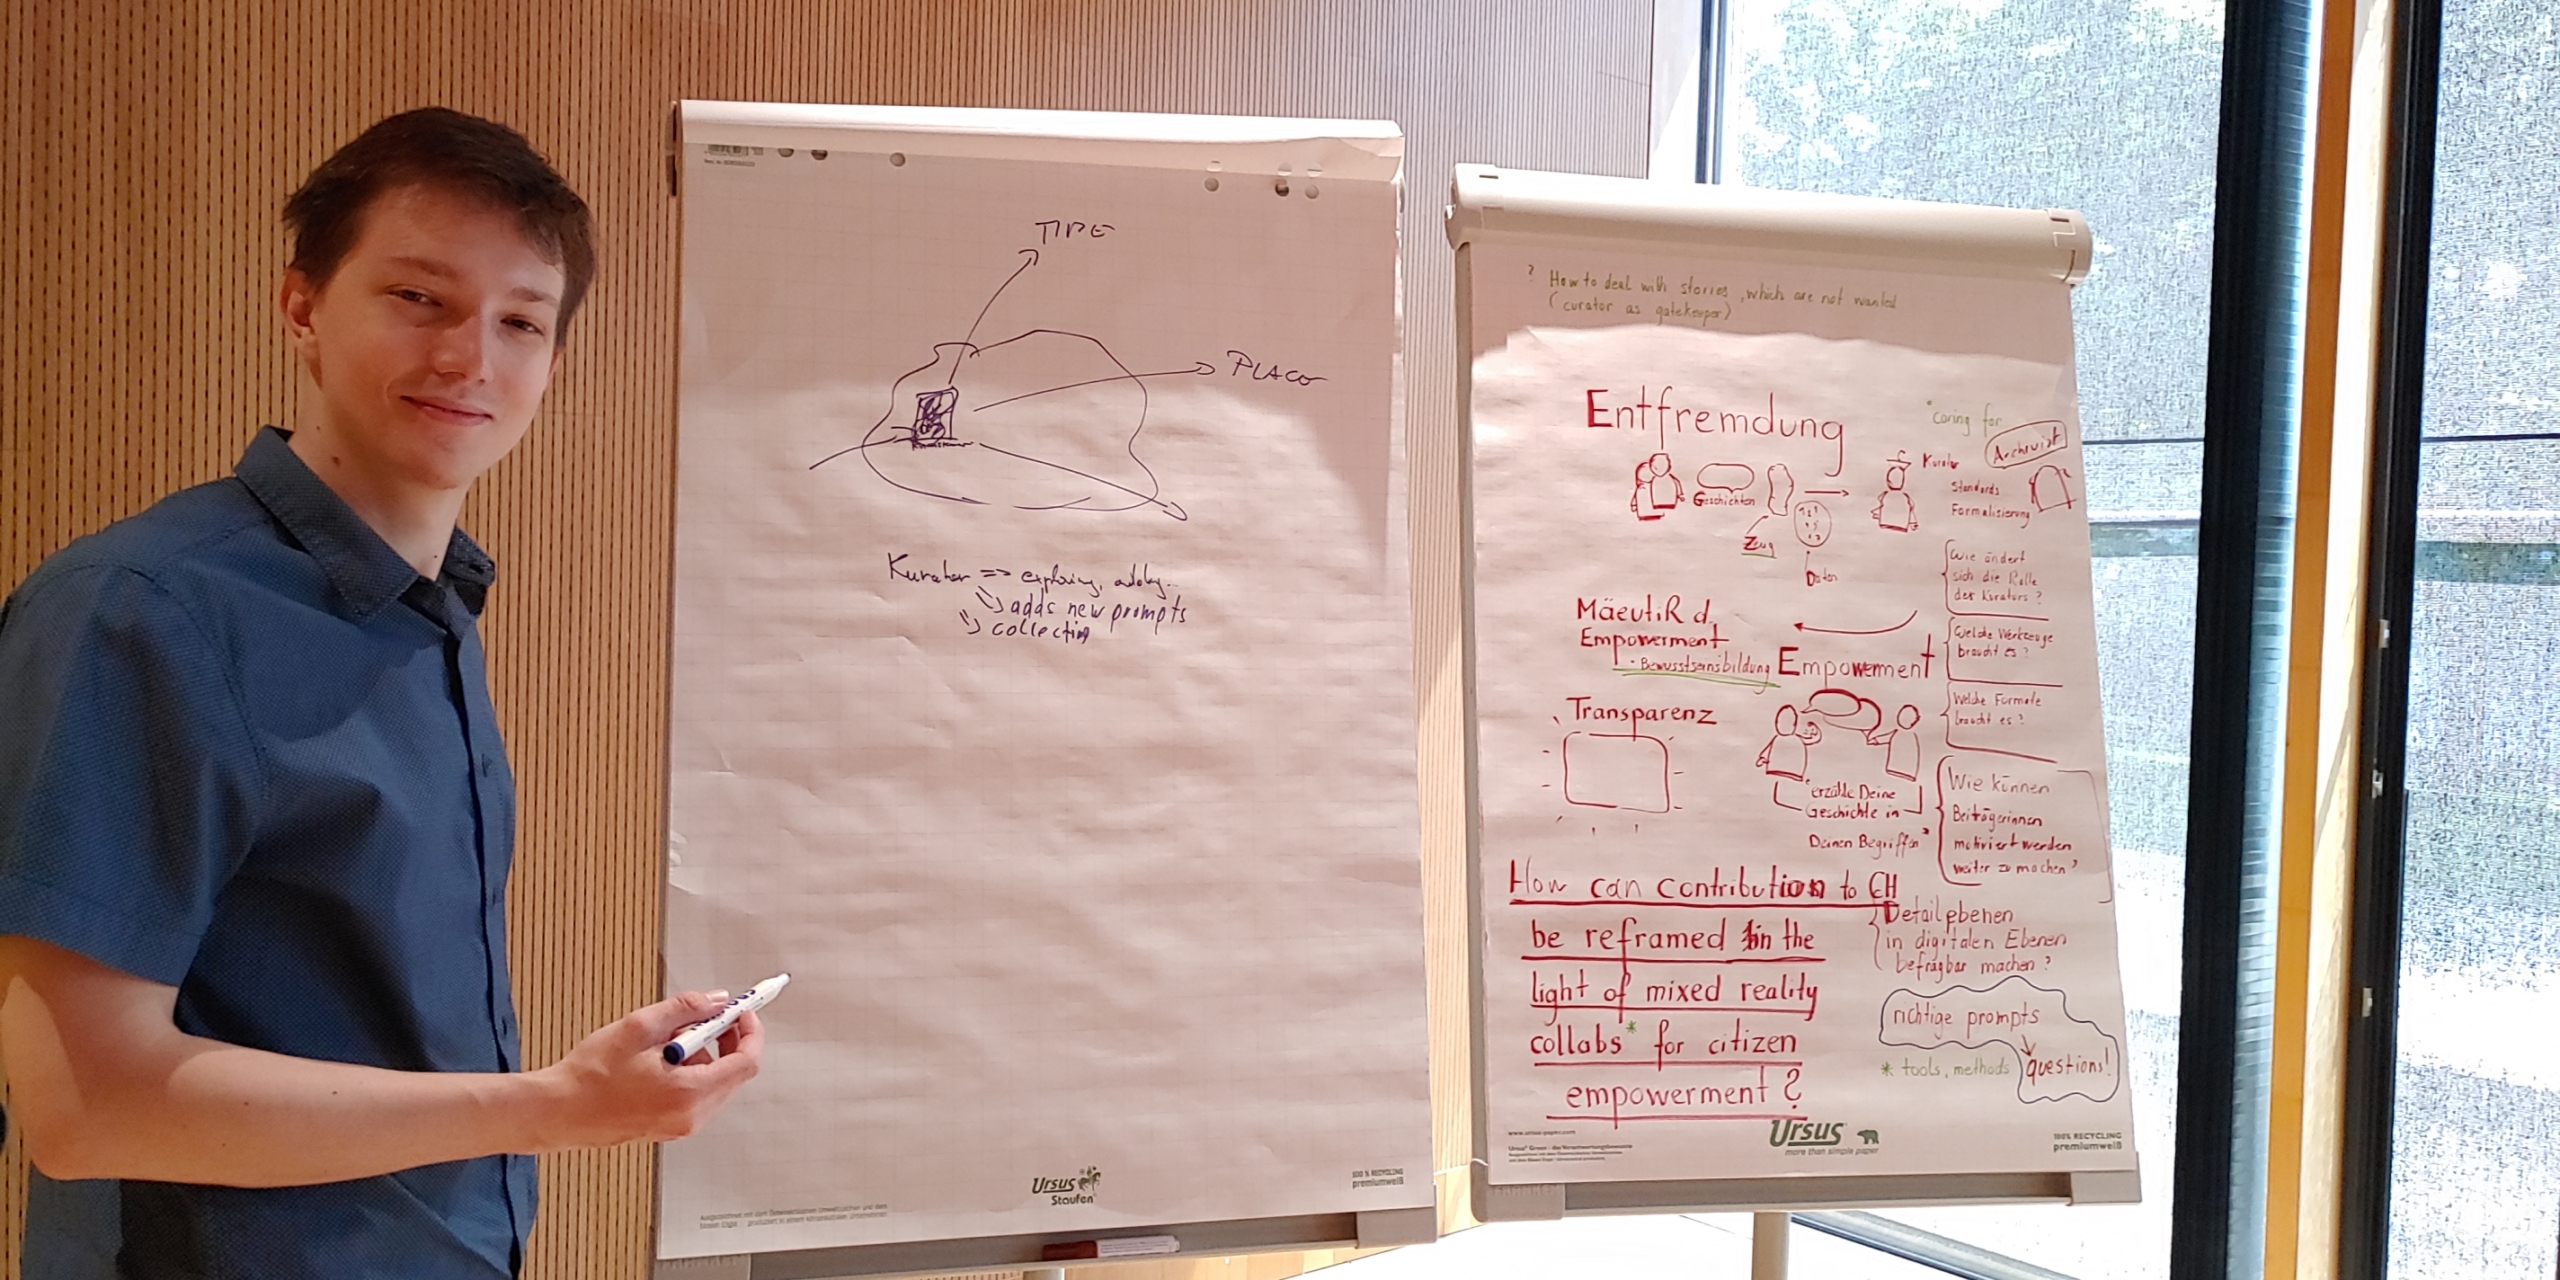 TIME
PLACE
Kurator => exploring, adding..
adds new prompts
collecting
Ursus
Staufen
100 % RECYCLING
premiumweiß
? How to deal with stories, which are not wanted
(curator as gatekeeper)
Entfremdung
"caring for
Archivist
Geschichten
Kurator
Standards
Formalisierung
Zeug
Daten
Wie ändert
sich die Rolle
des Kurators?
MäeutiK d.
Empowerment
· Bewusstseinsbildung
Empowerment
Welche Werkzeuge
braucht es?
Welche Formate
braucht es?
Transparenz
"erzähle Deine
Geschichte in
Deinen Begriffen"
Wie können
Beiträgerinnen
motiviert werden
weiter zu machen?
How can contributions to CH
be reframed in the
light of mixed reality
collabs* for citizen
empowerment?
Detailebenen
in digitalen Ebenen
befragbar machen?
richtige prompts
questions!
* tools, methods
www.ursus-paper.com
Ursus
more than simple paper
100% RECYCLING
premiumweiß